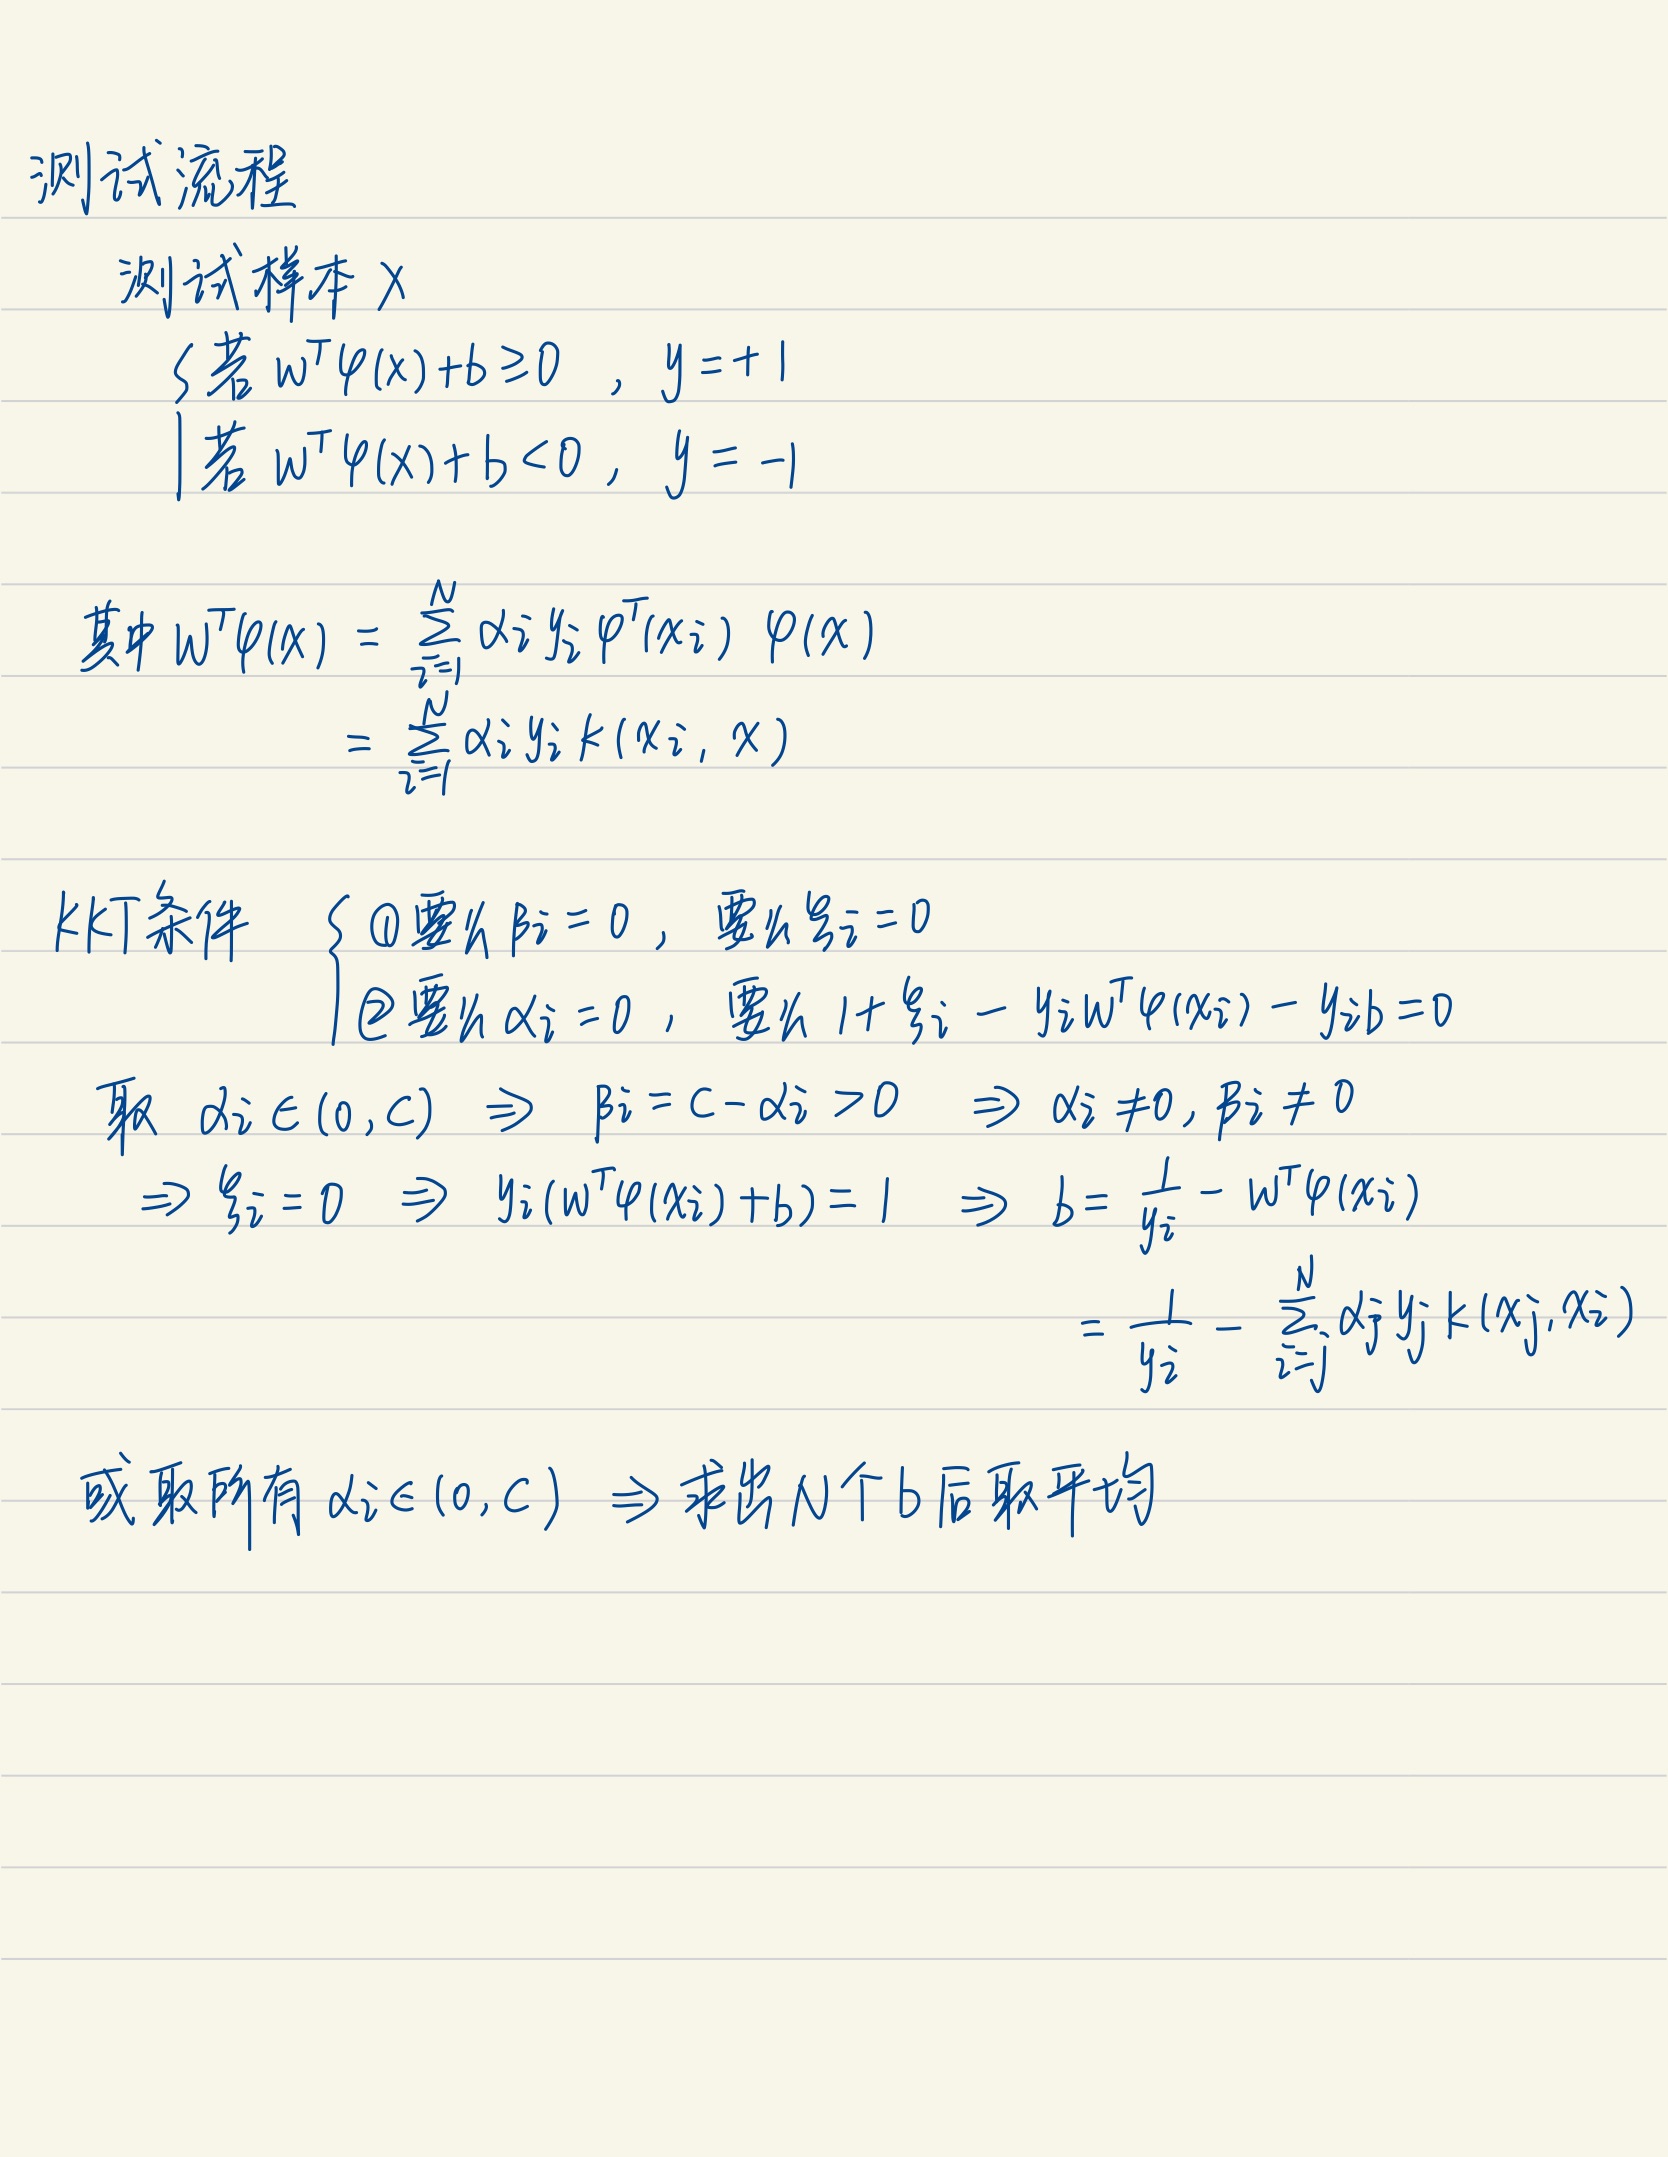 测试流程
测试样本 X
{ 若 WᵀΨ(x)+b≥0 , y=+1
若 WᵀΨ(x)+b<0 , y=-1
其中 Wᵀφ(x) = ∑_{i=1}^{N} αi yi φᵀ(xi) φ(x)
= ∑_{i=1}^{N} αi yi k(xi, x)
KKT条件 { ①要么 βi=0 , 要么 ξi=0
②要么 αi=0 , 要么 1+ξi - yiWᵀφ(xi) - yib=0
取 αi∈(0,C) ⇒ βi=C-αi>0 ⇒ αi≠0, βi≠0
⇒ ξi=0 ⇒ yi(Wᵀφ(xi)+b)=1 ⇒ b= 1/yi - Wᵀφ(xi)
= 1/yi - ∑_{i=j}^{N} αj yj k(xj, xi)
或取所有 αi∈(0,C) ⇒ 求出N个b后取平均